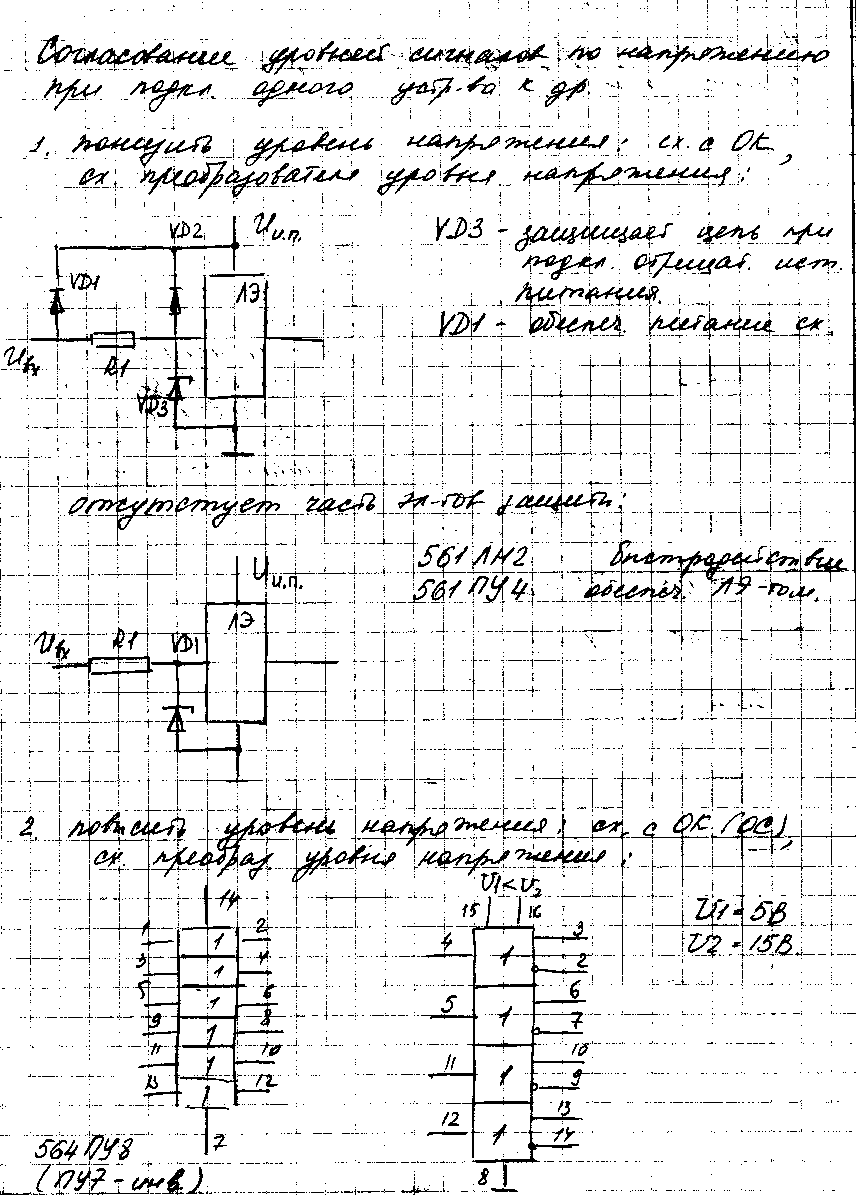 Согласование уровней сигналов по напряжению
при подкл. одного устр-ва к др.
1. понизить уровень напряжения: сх. с ОК,
сх. преобразователя уровня напряжения:
VD2
Uи.п.
VD1
ЛЭ
Uвх
R1
VD3
VD3 - защищает цепь при
подкл. отрицат. ист.
питания.
VD1 - обеспеч. питание сх.
отсутстует часть эл-тов защиты:
Uи.п.
ЛЭ
Uвх
R1
VD1
561 ЛН2 быстродействие
561 ПУ4 обеспеч. ЛЭ-том.
2. повысить уровень напряжения: сх. с ОК (ОС),
сх. преобраз. уровня напряжения:
14
1 1 2
3 1 4
5 1 6
9 1 8
11 1 10
13 1 12
7
564 ПУ8
(ПУ7 - инв.)
U1 < U2
15 16
4 1 3
2
5 1 6
7
11 1 10
9
12 1 13
14
8
U1 = 5В
U2 = 15В